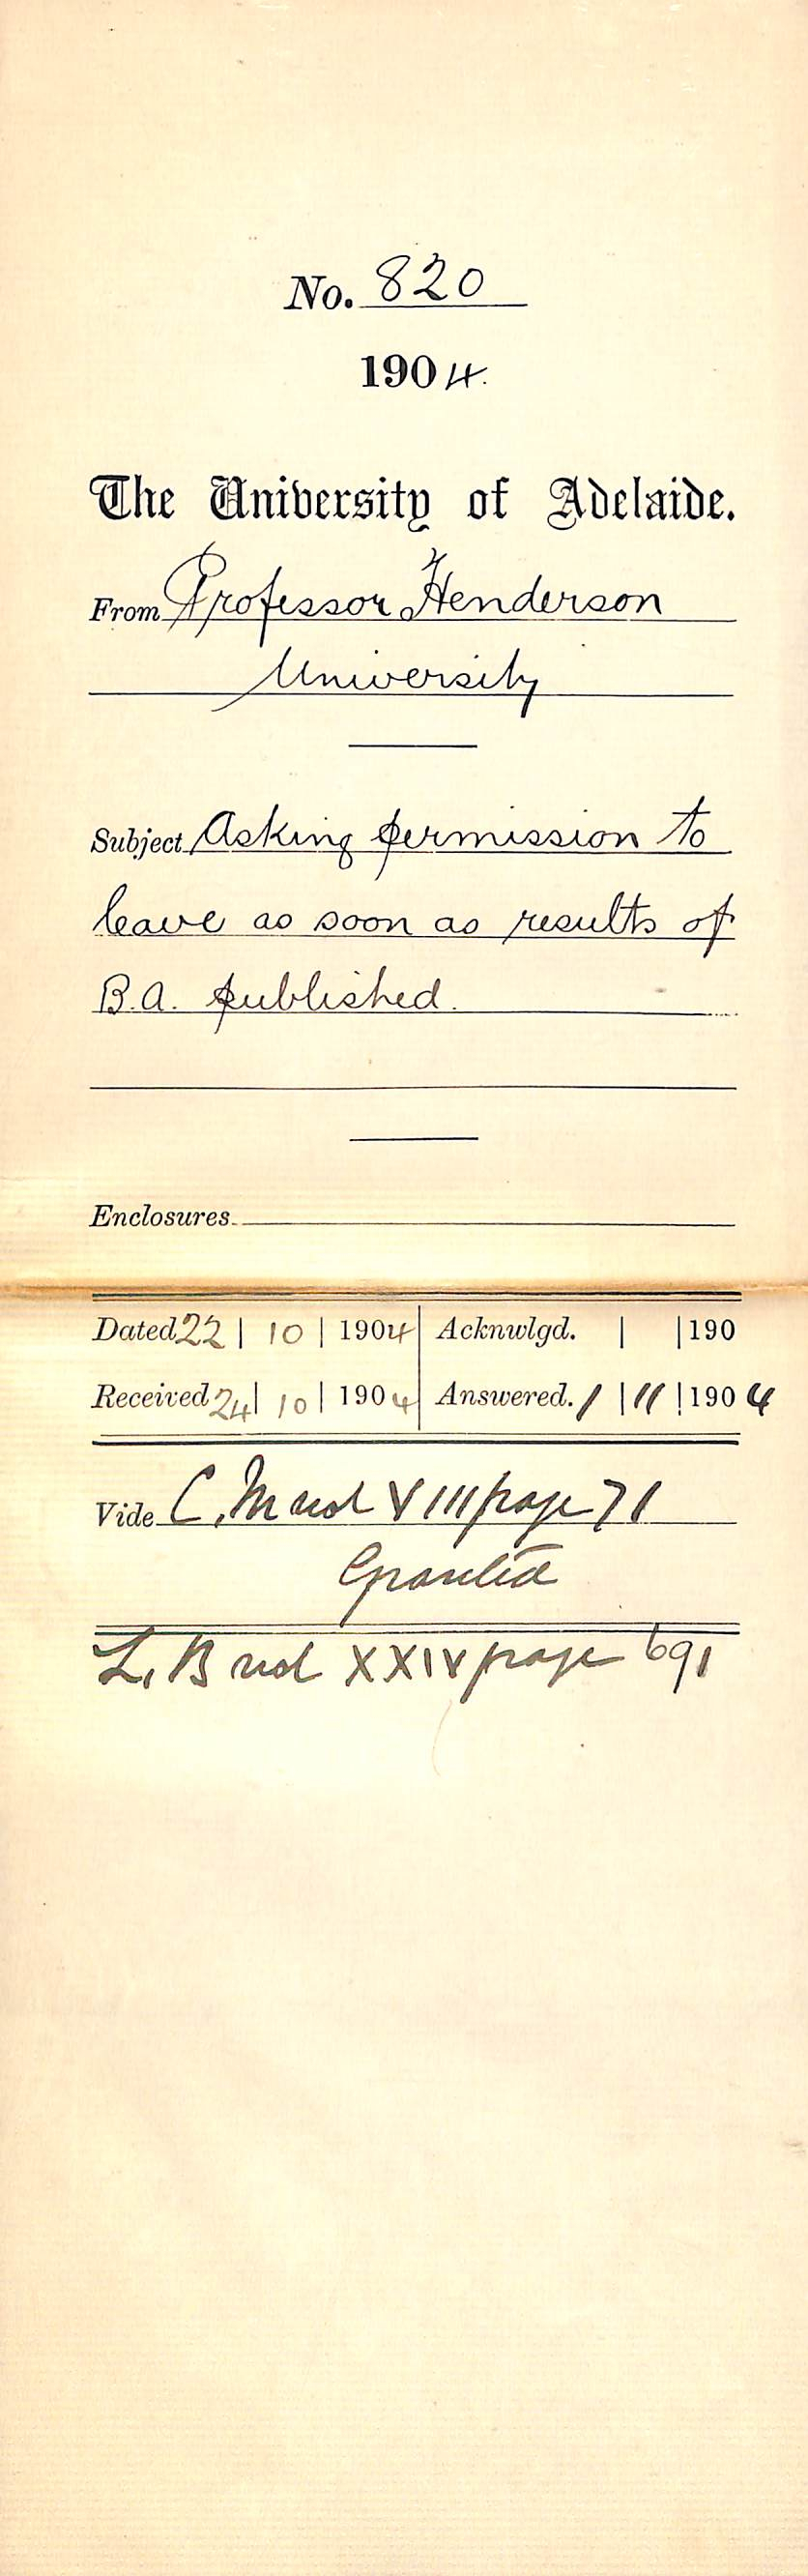 No. 820
1904.
The University of Adelaide.
From Professor Henderson
University
Subject Asking permission to
leave as soon as results of
B.A. published.
Enclosures
Dated 22 | 10 | 1904 Acknwlgd. | | 190
Received 24 | 10 | 1904 Answered. 1 | 11 | 1904
Vide C. M vol VIII page 71
Granted
L. B vol XXIV page 691